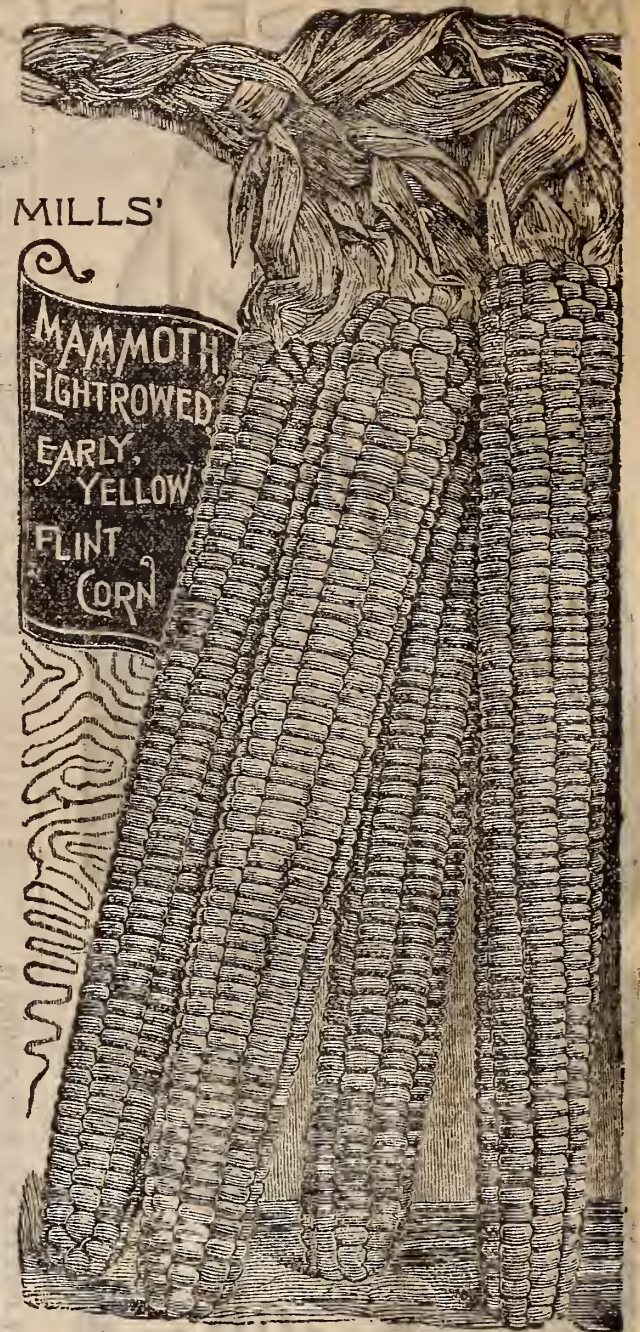 MILLS'
MAMMOTH,
EIGHTROWED,
EARLY,
YELLOW,
FLINT
CORN